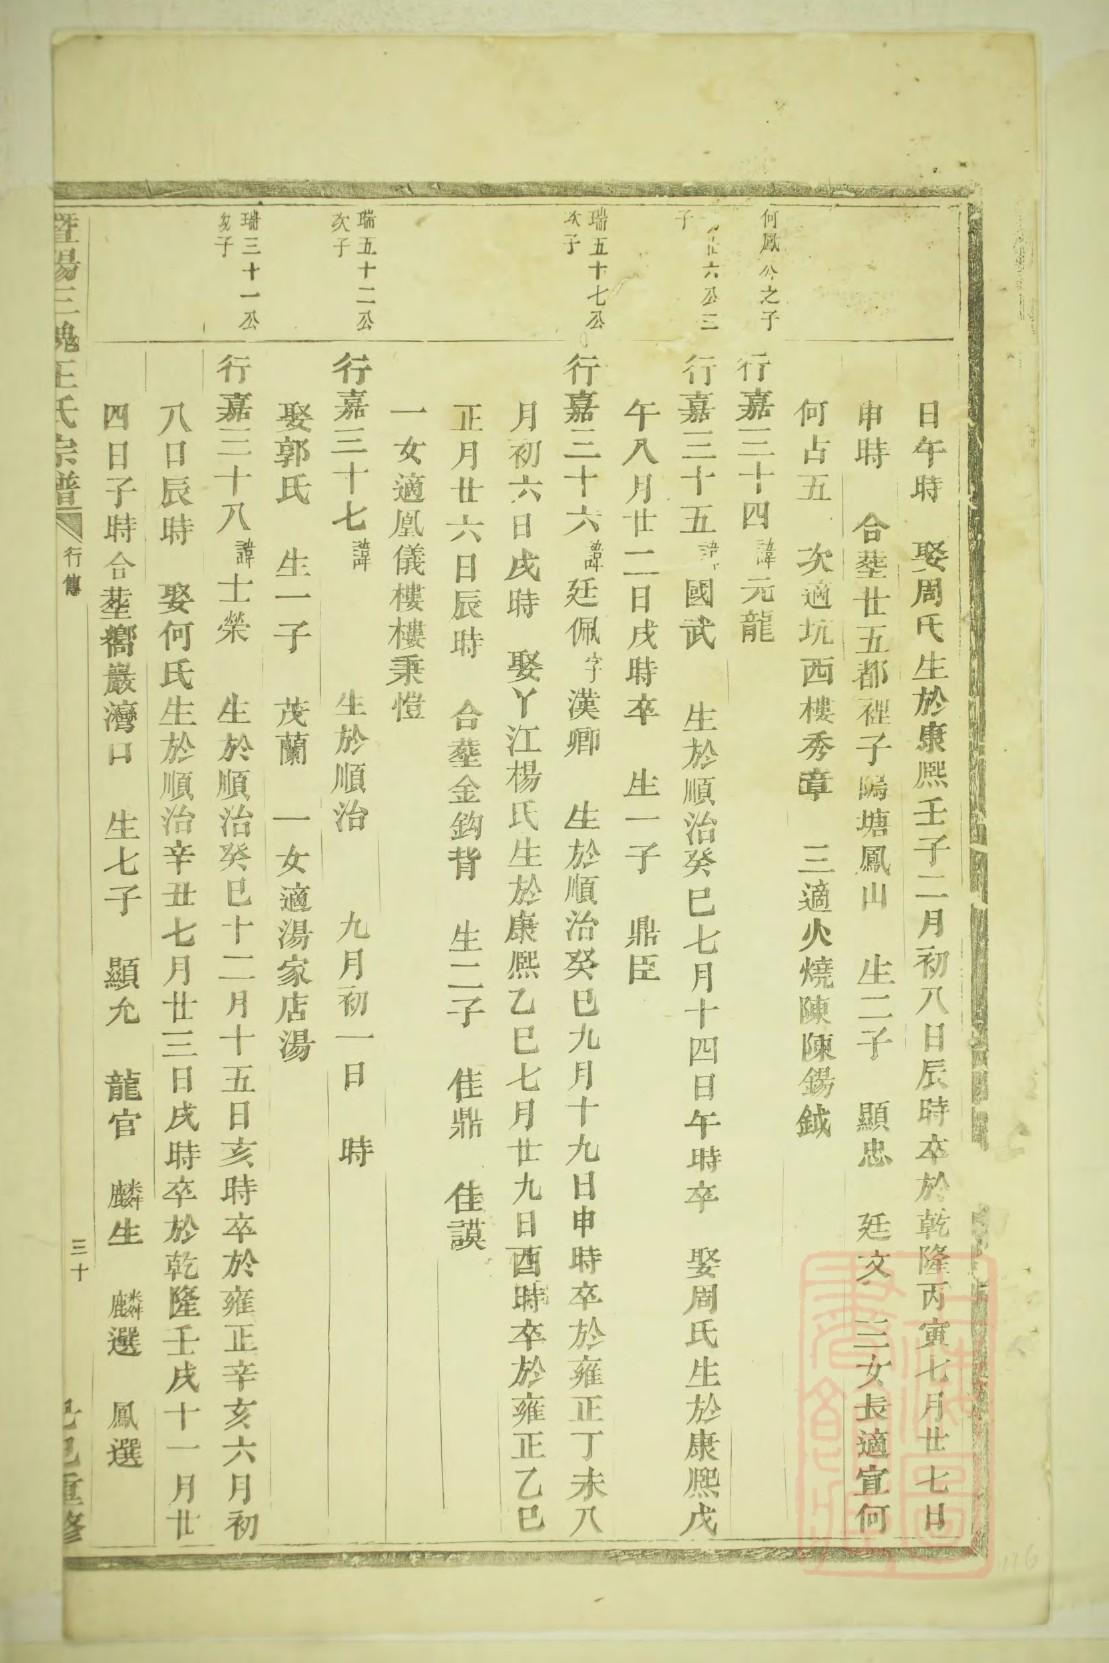 日午時 娶周氏生於康熙壬子二月初八日辰時卒於乾隆丙寅七月廿七日
申時 合塟廿五都裡子鳴塘鳳山 生二子 顯忠 廷文 三女長適宣何
何占五 次適坑西樓秀章 三適火燒陳陳錫鉞
何鳳公之子
行嘉三十四諱元龍
廿六公三
子
行嘉三十五諱國武 生於順治癸巳七月十四日午時卒 娶周氏生於康熙戊
午八月廿二日戌時卒 生一子 鼎臣
瑞五十七公
次子
行嘉三十六諱廷佩字漢卿 生於順治癸巳九月十九日申時卒於雍正丁未八
月初六日戌時 娶丫江楊氏生於康熙乙巳七月廿九日酉時卒於雍正乙巳
正月廿六日辰時 合塟金鈎背 生二子 佳鼎 佳謨
一女適凰儀樓樓秉愷
瑞五十二公
次子
行嘉三十七諱 生於順治 九月初一日 時
娶郭氏 生一子 茂蘭 一女適湯家店湯
瑞三十一公
次子
行嘉三十八諱士榮 生於順治癸巳十二月十五日亥時卒於雍正辛亥六月初
八日辰時 娶何氏生於順治辛丑七月廿三日戌時卒於乾隆壬戌十一月廿
四日子時合塟嚮巖灣口 生七子 顯允 龍官 麟生 麟選 鳳選
暨陽三槐王氏宗譜 行傳 三十 己巳重修